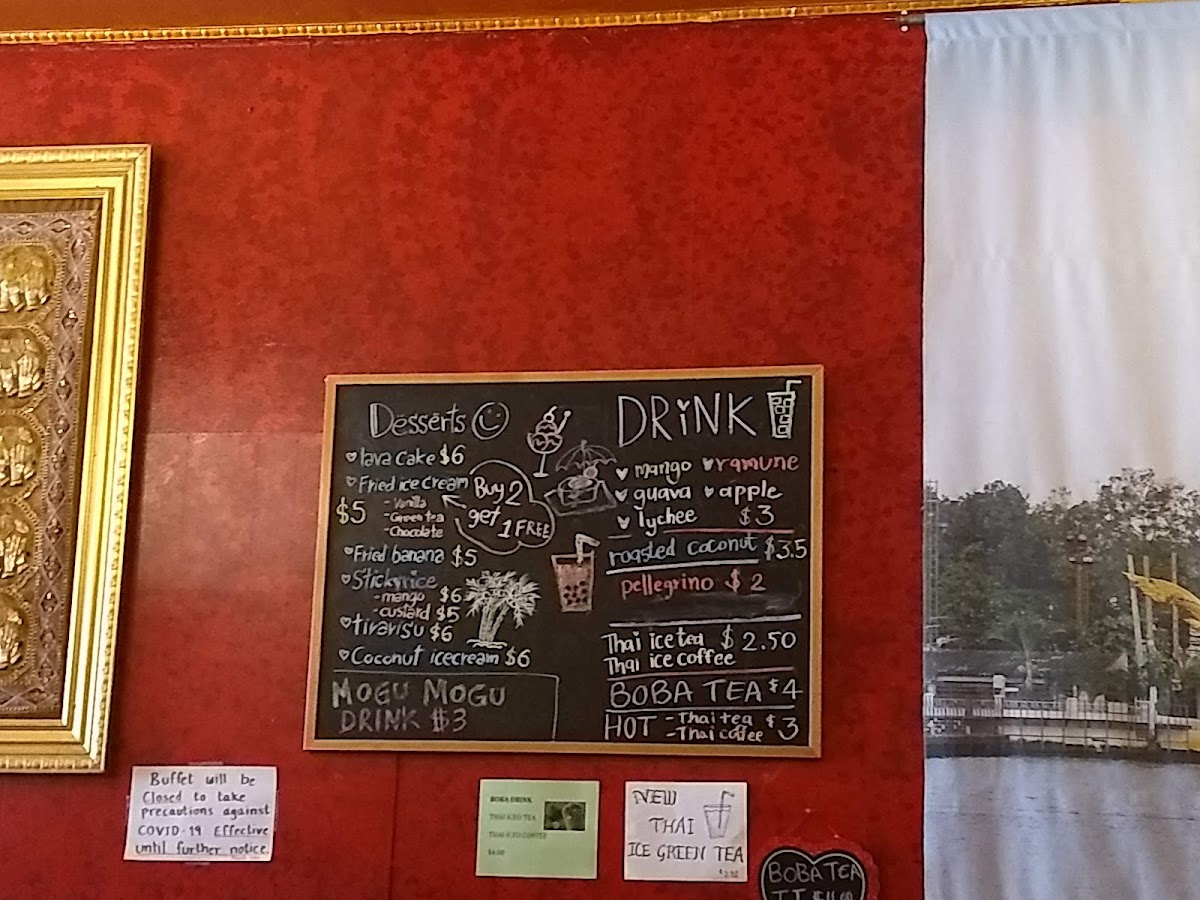 Desserts
lava cake $6
Fried ice cream
$5
- Vanilla
- Green tea
- Chocolate
Buy 2
get
1 FREE
Fried banana $5
Stickyrice
- mango $6
- custard $5
tiramisu $6
Coconut icecream $6
MOGU MOGU
DRINK $3
DRiNK
mango ramune
guava apple
lychee $3
roasted coconut $3.5
pellegrino $2
Thai ice tea $2.50
Thai ice coffee
BOBA TEA $4
HOT - Thai tea $3
- Thai coffee
Buffet will be
Closed to take
precautions against
COVID-19 Effective
until further notice.
BOBA DRINK
THAI ICED TEA
THAI ICED COFFEE
NEW
THAI
ICE GREEN TEA
BOBA TEA